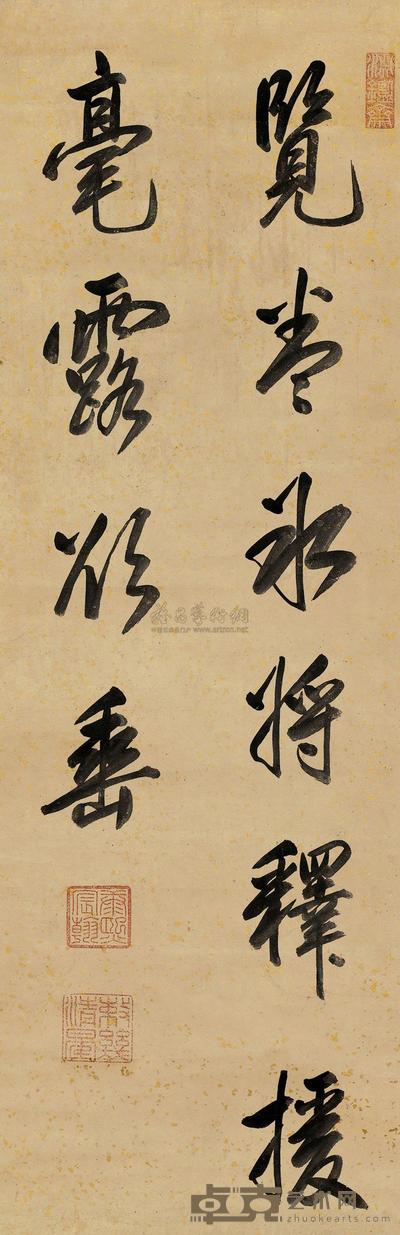 覽卷冰將釋援
毫露欲垂
淵鑑齋
康熙宸翰
敕幾清晏
www.artron.net
卓克艺术网
zhuokearts.com